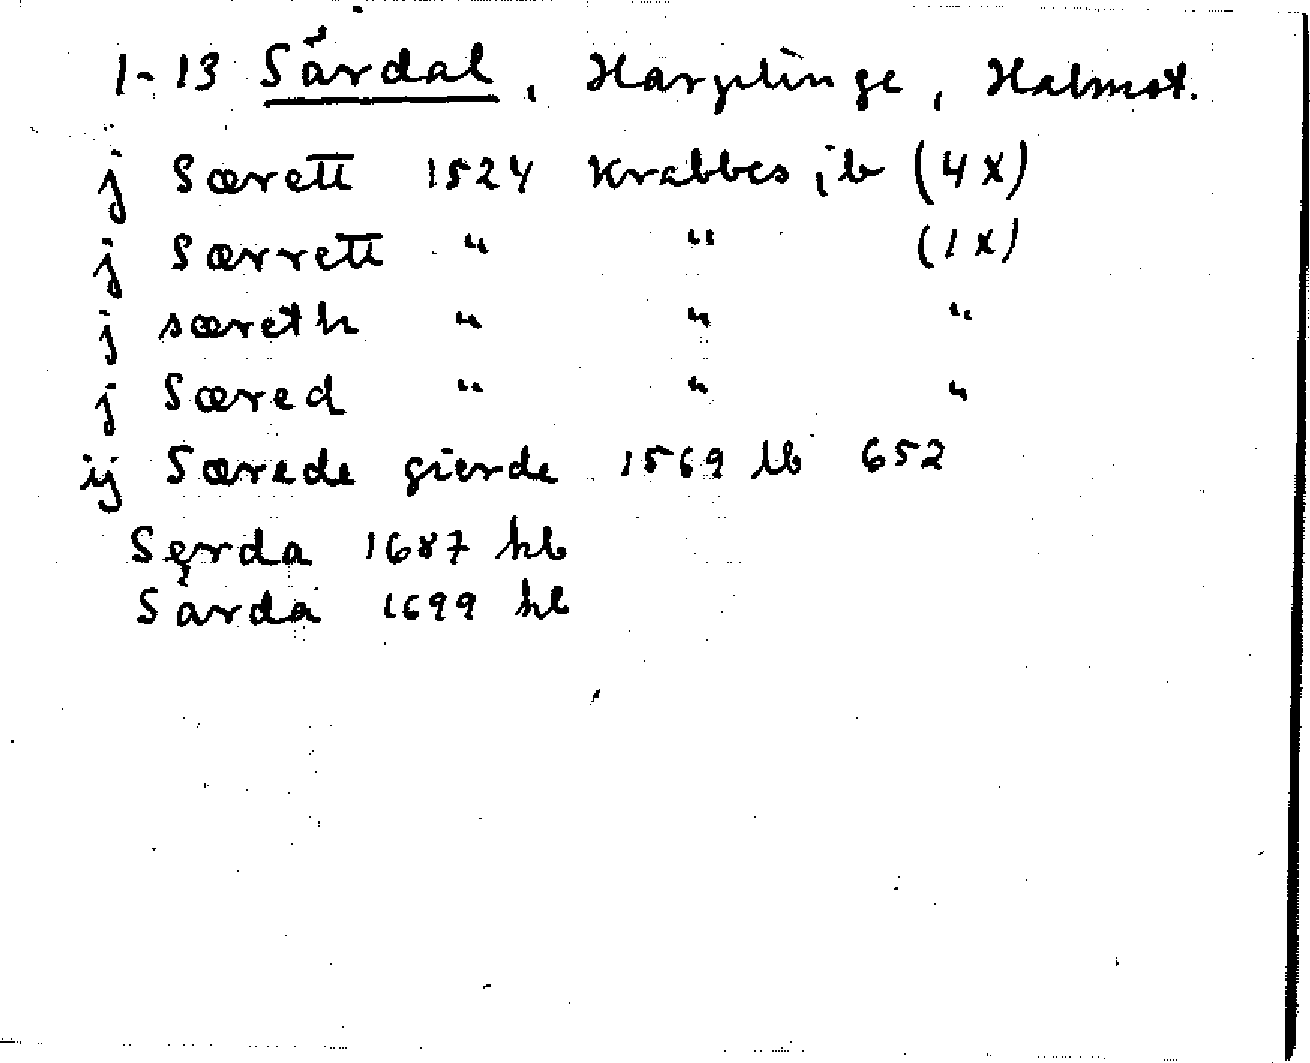 1-13 Särdal, Harplinge, Halmst.
j Særett 1524 Krabbes jb (4x)
j Særrett " " (1x)
j særeth " " "
j Særed " " "
ij Særede gierde 1569 lb 652
Serda 1687 hb
Sarda 1699 hb